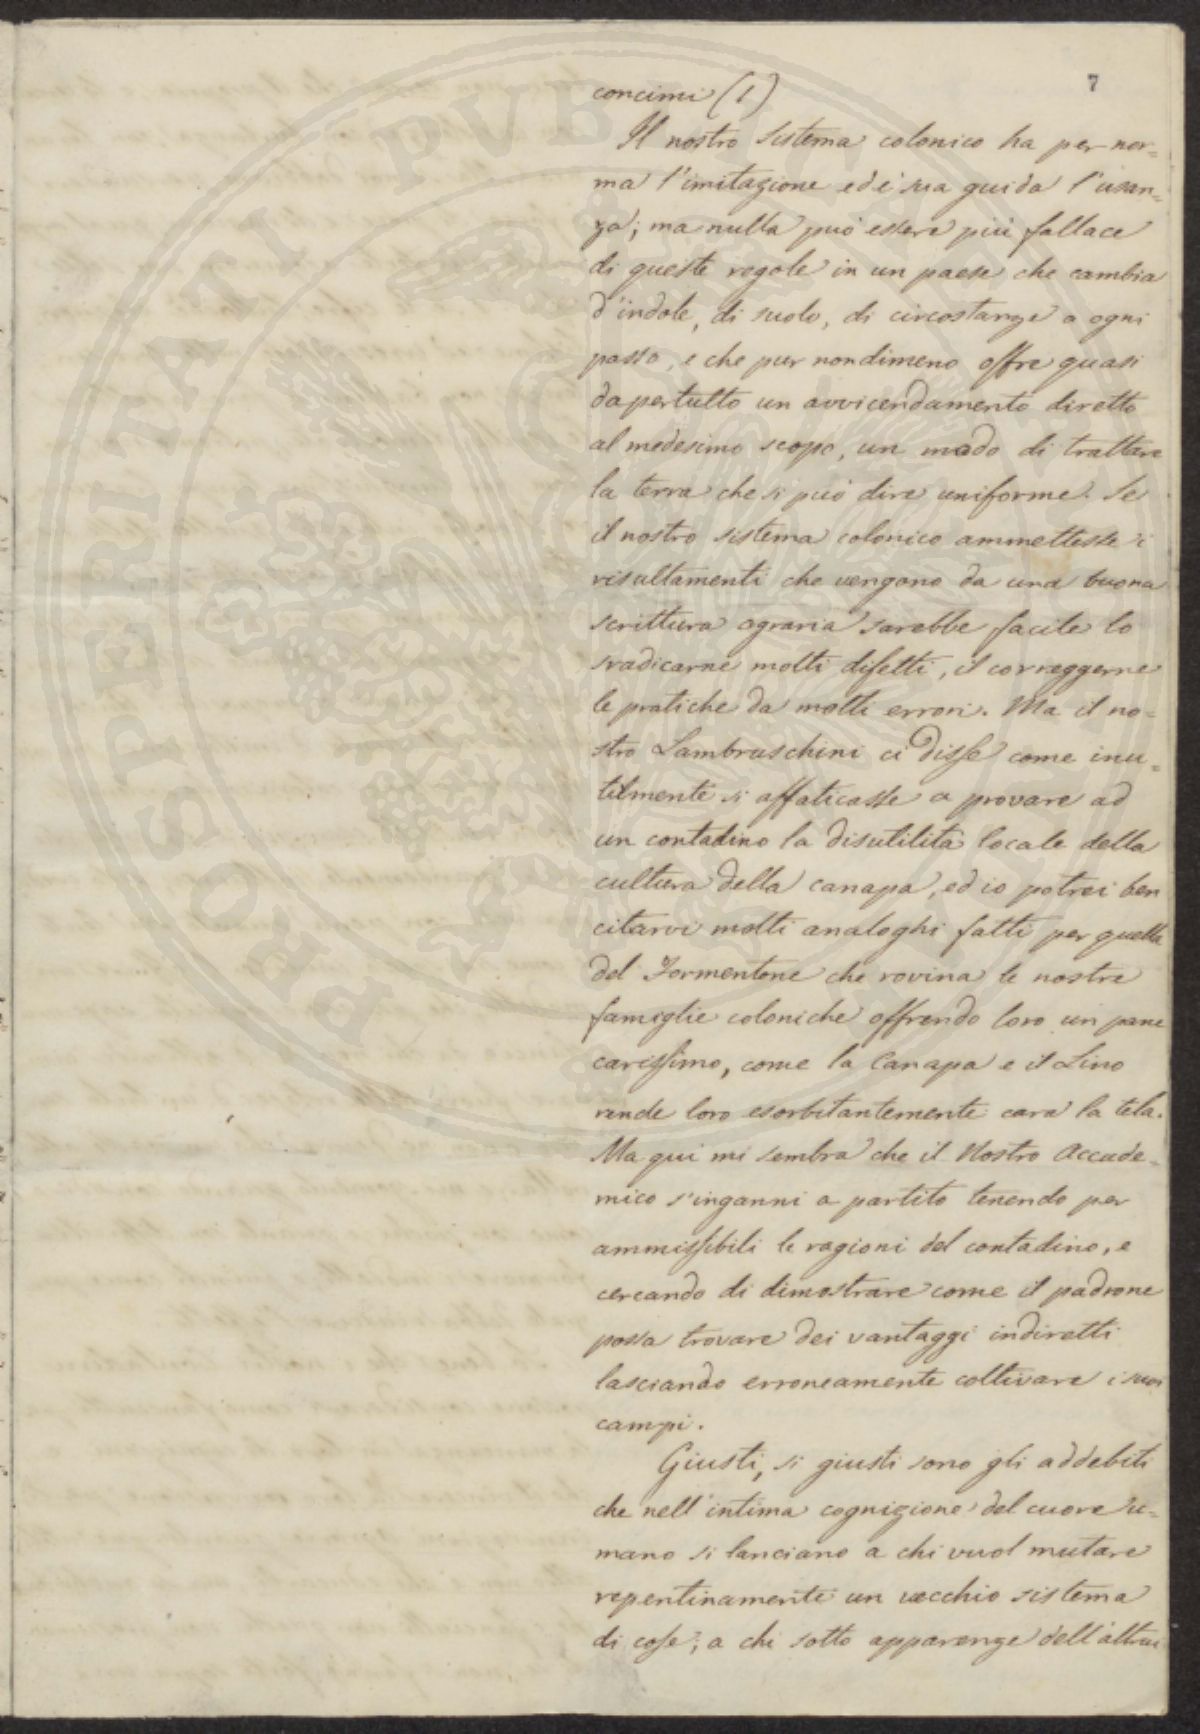 7
concimi (1)
Il nostro sistema colonico ha per nor=
ma l'imitazione ed è sua guida l'usan=
za; ma nulla può essere più fallace
di queste regole in un paese che cambia
d'indole, di suolo, di circostanze a ogni
passo, e che pur nondimeno offre quasi
dapertutto un avvicendamento diretto
al medesimo scopo, un modo di trattare
la terra che si può dire uniforme. Se
il nostro sistema colonico ammettesse i
risultamenti che vengono da una buona
scrittura agraria sarebbe facile lo
sradicarne molti difetti, il correggerne
le pratiche da molti errori. Ma il no=
stro Lambruschini ci disse come inu=
tilmente si affaticasse a provare ad
un contadino la disutilità locale della
cultura della canapa, ed io potrei ben
citarvi molti analoghi fatti per quella
del Formentone che rovina le nostre
famiglie coloniche offrendo loro un pane
carissimo, come la Canapa e il Lino
rende loro esorbitantemente cara la tela.
Ma qui mi sembra che il Nostro Accade=
mico s'inganni a partito tenendo per
ammissibili le ragioni del contadino, e
cercando di dimostrare come il padrone
possa trovare dei vantaggi indiretti
lasciando erroneamente coltivare i suoi
campi.
Giusti, si giusti sono gli addebiti
che nell'intima cognizione del cuore u=
mano si lanciano a chi vuol mutare
repentinamente un vecchio sistema
di cose; a chi sotto apparenze dell'altrui
PROSPERITATI PVBLICAE